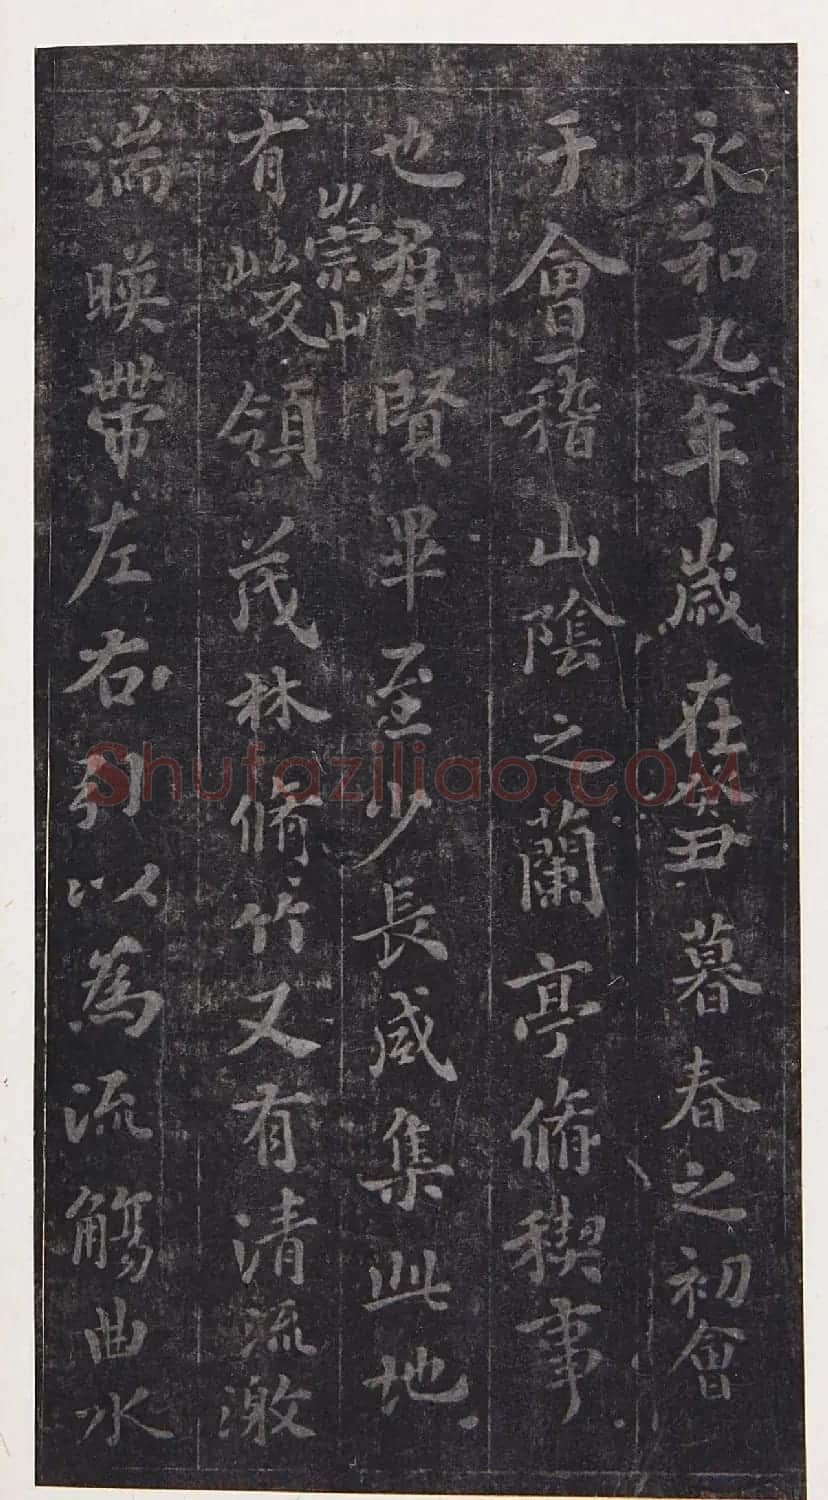 永和九年歲在癸丑暮春之初會
于會稽山陰之蘭亭脩稧事
也羣賢畢至少長咸集此地
有崇山峻領茂林脩竹又有清流激
湍暎帶左右引以為流觴曲水
Shufaziliao.COM